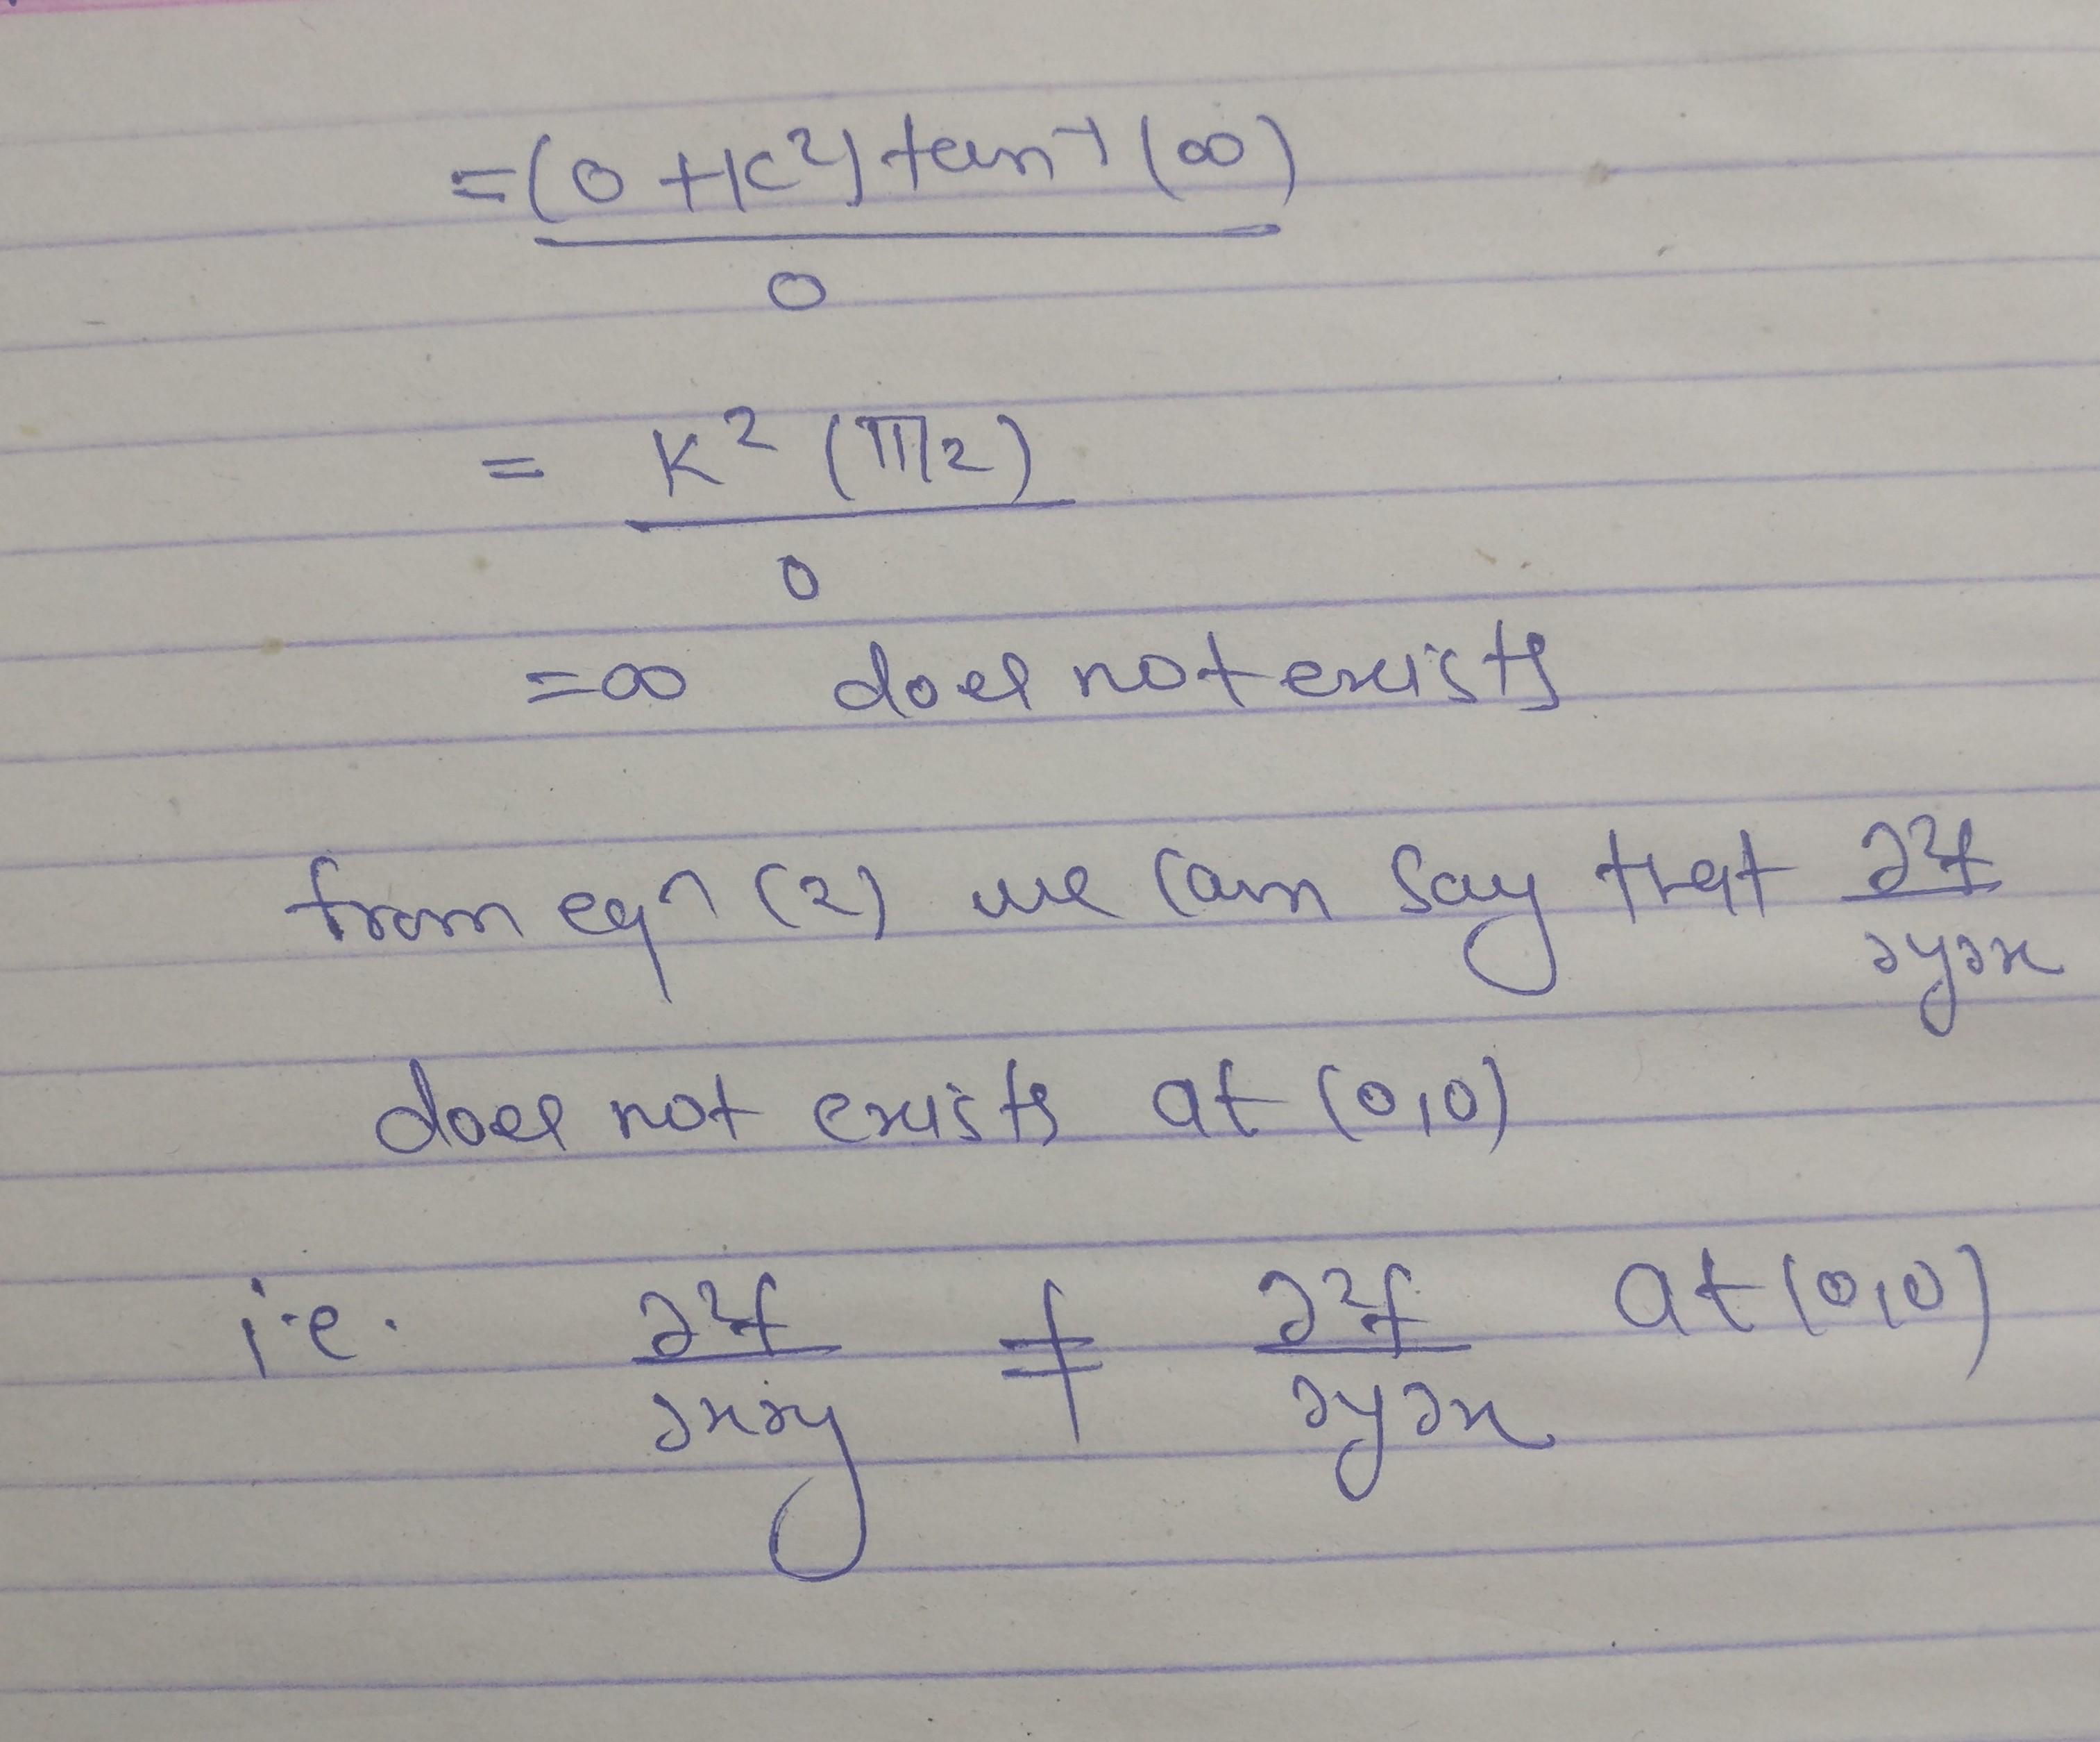 = (0 + k²) tan⁻¹ (∞)
0
= K² (π/2)
0
= ∞ does not exists
from eqⁿ (2) we can say that ∂²f
∂y∂x
does not exists at (0,0)
i.e. ∂²f ≠ ∂²f at (0,0)
∂x∂y ∂y∂x